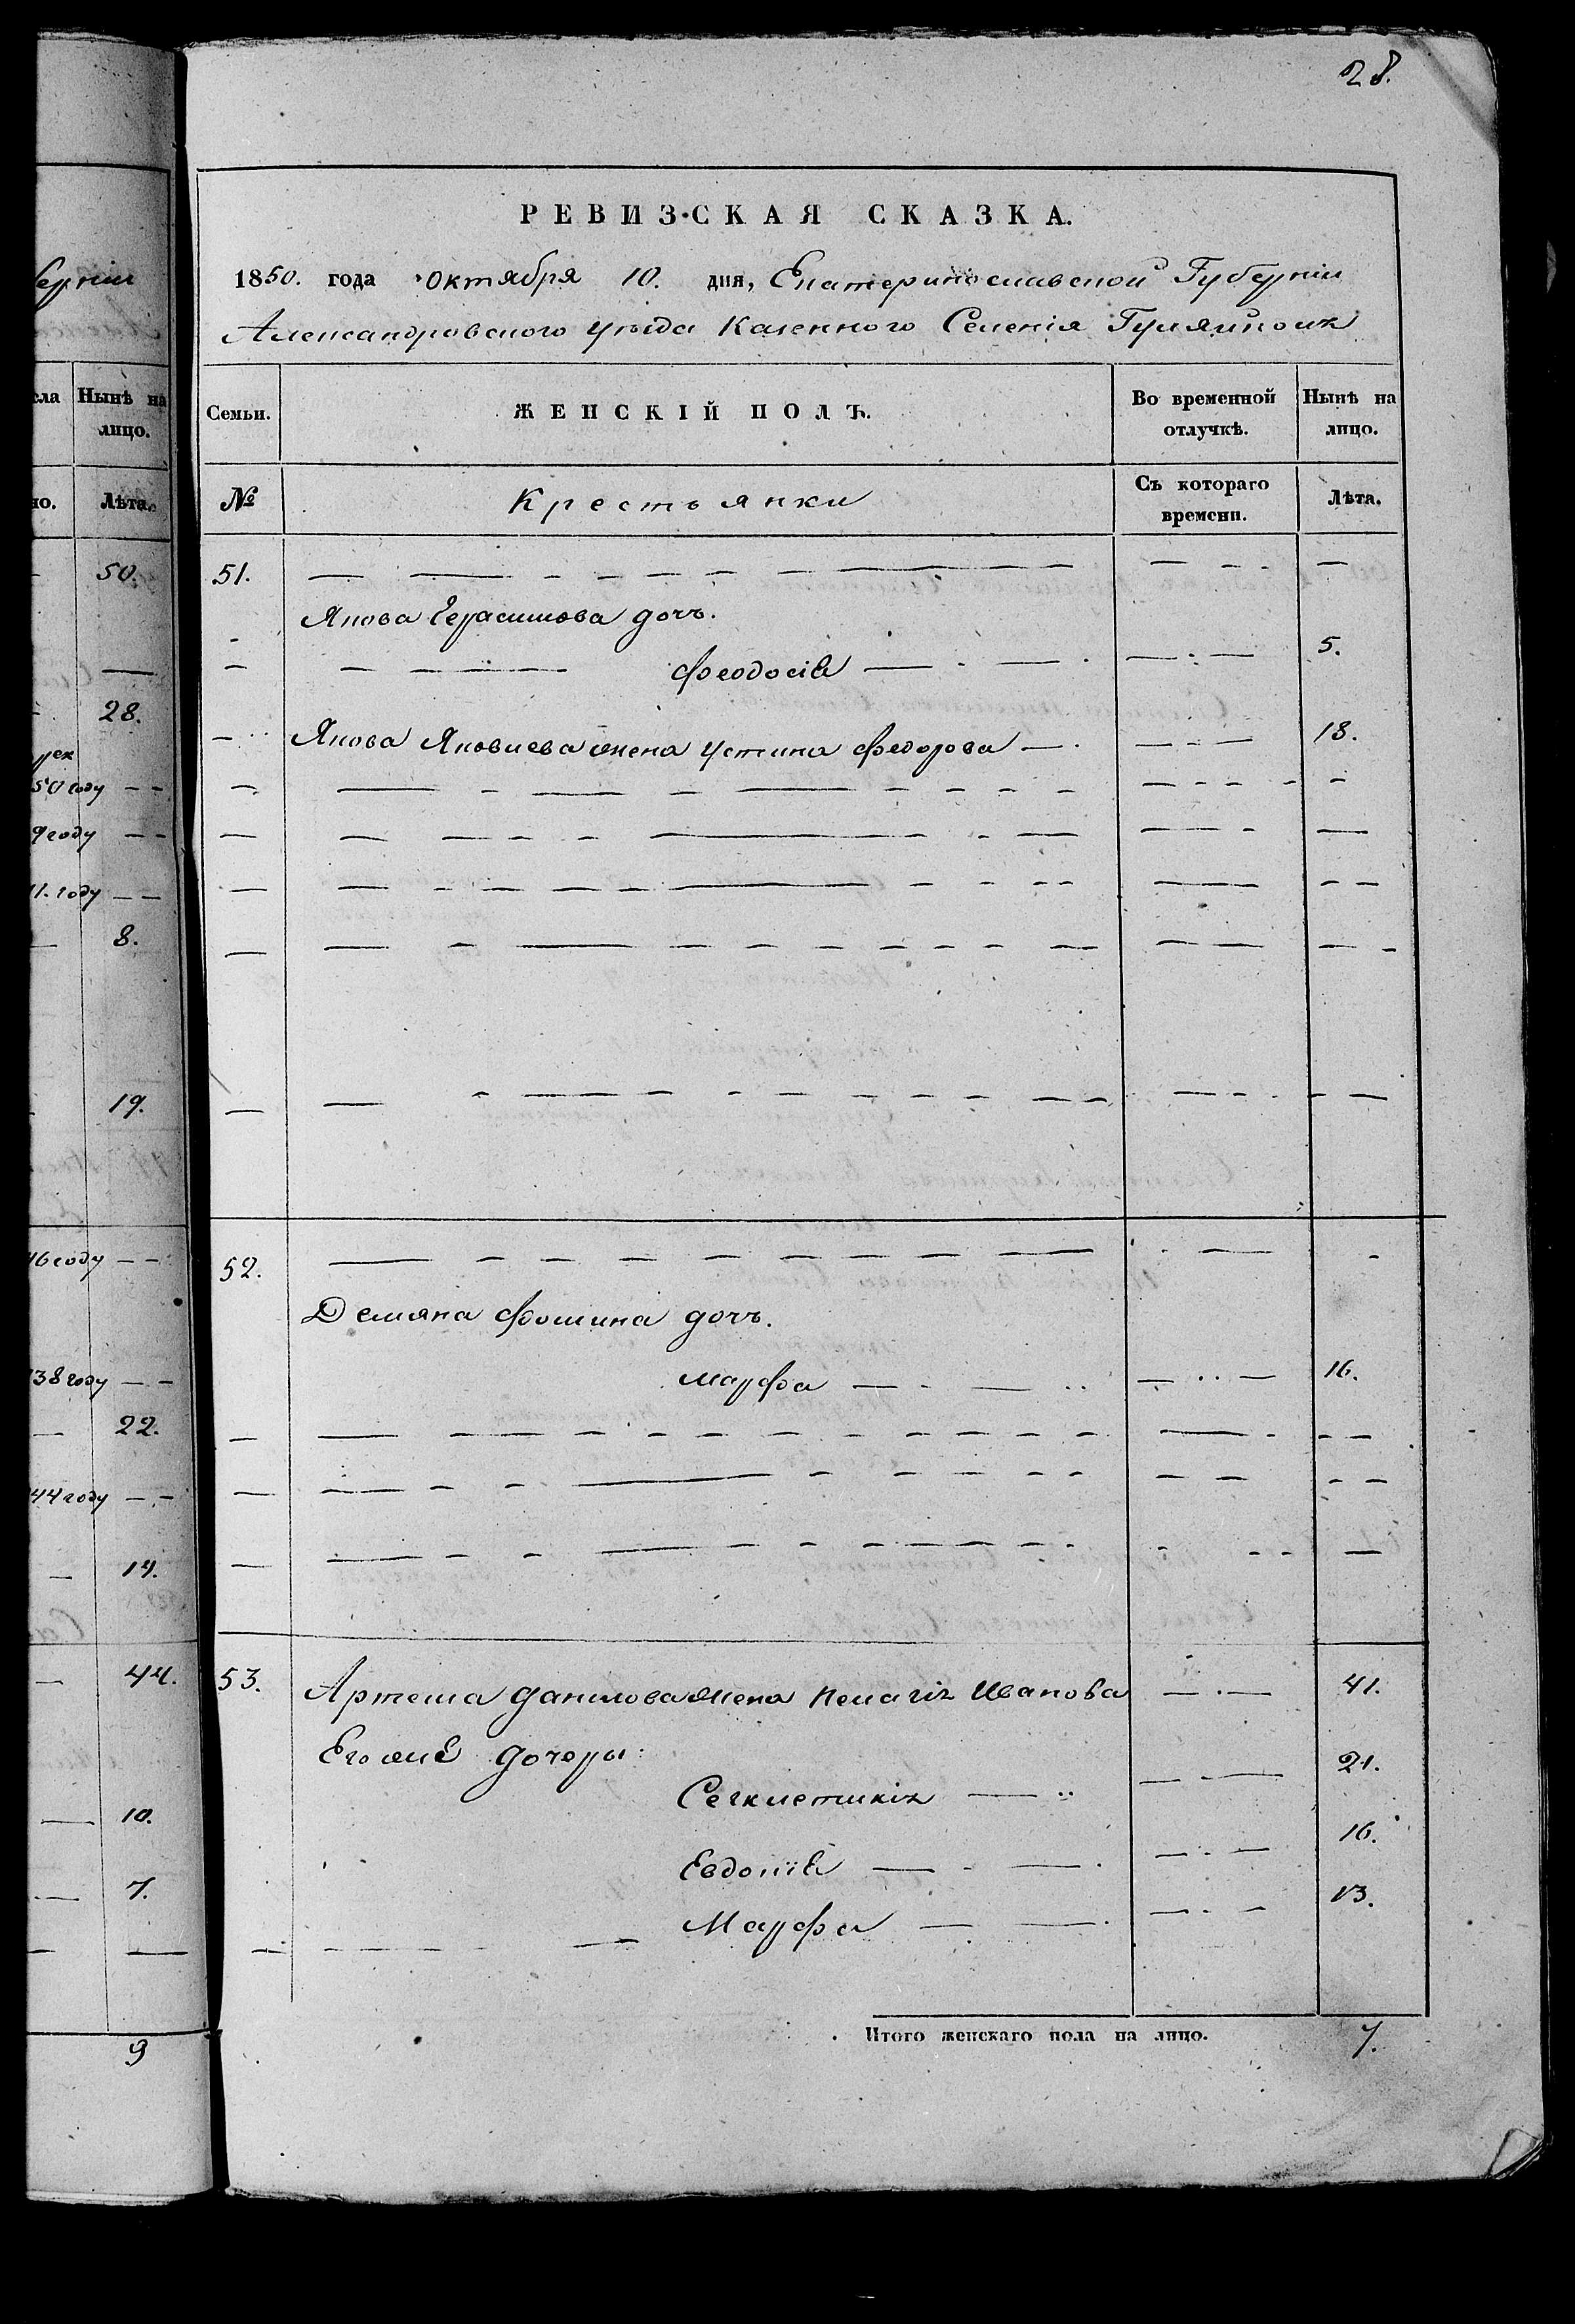 28.
РЕВИЗСКАЯ СКАЗКА.
1850. года октября 10. дня, Екатеринославской Губерніи
Александровского уѣзда Казенного Селенія Гуляйполя
Семьи.
ЖЕНСКІЙ ПОЛЪ.
Во временной отлучкѣ.
Нынѣ на лицо.
№
Крестьянки
Съ котораго времени.
Лѣта.
51. — — —
Якова Герасимова дочь.
Феодосія — — 5.
Якова Яковлева жена Устина Федорова — — 18.
52. — — —
Демяна Фомина дочь.
Марфа — — 16.
53. Артема Данилова жена Пелагія Иванова — 41.
Его же дочеры:
Секлетикія — — 21.
Евдокія — — 16.
Марфа — — 13.
Итого женскаго пола на лицо. 7.
губерніи
Нынѣ на лицо.
Лѣта.
50.
28.
50 году — —
9 году — —
11. году — —
8.
19.
46 году — —
38 году — —
22.
44 году — —
14.
44.
10.
7.
9